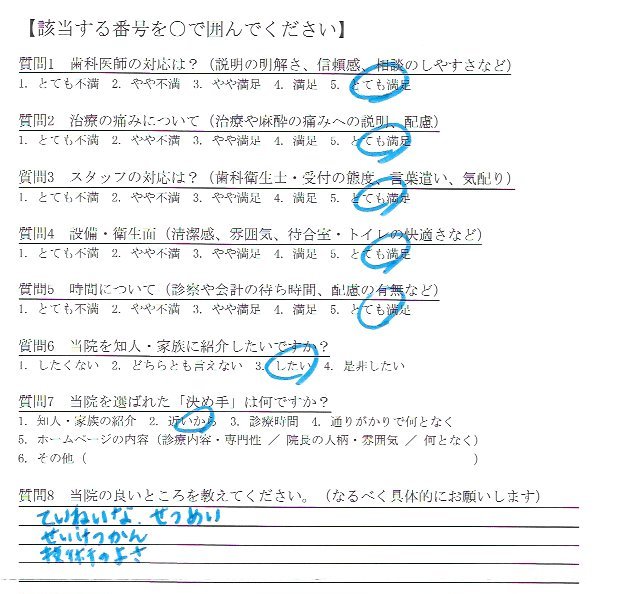 【該当する番号を○で囲んでください】
質問1 歯科医師の対応は?(説明の明解さ、信頼感、相談のしやすさなど)
1. とても不満 2. やや不満 3. やや満足 4. 満足 5. とても満足
質問2 治療の痛みについて(治療や麻酔の痛みへの説明、配慮)
1. とても不満 2. やや不満 3. やや満足 4. 満足 5. とても満足
質問3 スタッフの対応は?(歯科衛生士・受付の態度、言葉遣い、気配り)
1. とても不満 2. やや不満 3. やや満足 4. 満足 5. とても満足
質問4 設備・衛生面(清潔感、雰囲気、待合室・トイレの快適さなど)
1. とても不満 2. やや不満 3. やや満足 4. 満足 5. とても満足
質問5 時間について(診察や会計の待ち時間、配慮の有無など)
1. とても不満 2. やや不満 3. やや満足 4. 満足 5. とても満足
質問6 当院を知人・家族に紹介したいですか?
1. したくない 2. どちらとも言えない 3. したい 4. 是非したい
質問7 当院を選ばれた「決め手」は何ですか?
1. 知人・家族の紹介 2. 近いから 3. 診療時間 4. 通りがかりで何となく
5. ホームページの内容(診療内容・専門性 / 院長の人柄・雰囲気 / 何となく)
6. その他( )
質問8 当院の良いところを教えてください。(なるべく具体的にお願いします)
ていねいな、せつめい
せいけつかん
のよさ